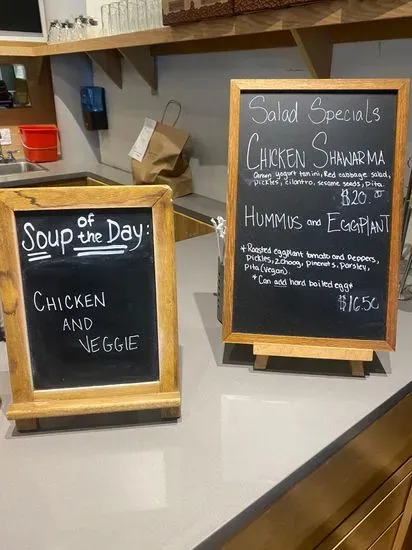 Soup of the Day:
CHICKEN
AND
VEGGIE
Salad Specials
CHICKEN SHAWARMA
yogurt tahini, Red cabbage salad,
pickles, cilantro, sesame seeds, pita.
$20.00
HUMMUS and EGGPLANT
* Roasted eggplant tomato and Peppers,
Pickles, Zchoog, pinenuts, parsley,
Pita (vegan).
* Can add hard boiled egg *
$16.50